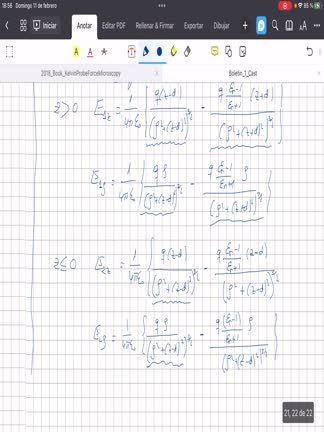 18:56 Domingo 11 de febrero
85 %
Iniciar Anotar Editar PDF Rellenar & Firmar Exportar Dibujar
2018_Book_KelvinProbeForceMicroscopy Boletin_1_Cast
z>0 E₁z = 1/4πε₀ { q(z-d)/(ρ²+(z-d)²)^3/2 - q (εr-1)/(εr+1) (z+d)/(ρ²+(z+d)²)^3/2 }
E₁ρ = 1/4πε₀ { qρ/(ρ²+(z-d)²)^3/2 - q (εr-1)/(εr+1) ρ/(ρ²+(z+d)²)^3/2 }
z≤0 E₂z = 1/4πε₀ { q(z-d)/(ρ²+(z-d)²)^3/2 - q (εr-1)/(εr+1) (z-d)/(ρ²+(z-d)²)^3/2 }
E₂ρ = 1/4πε₀ { qρ/(ρ²+(z-d)²)^3/2 - q (εr-1)/(εr+1) ρ/(ρ²+(z-d)²)^3/2 }
21, 22 de 22